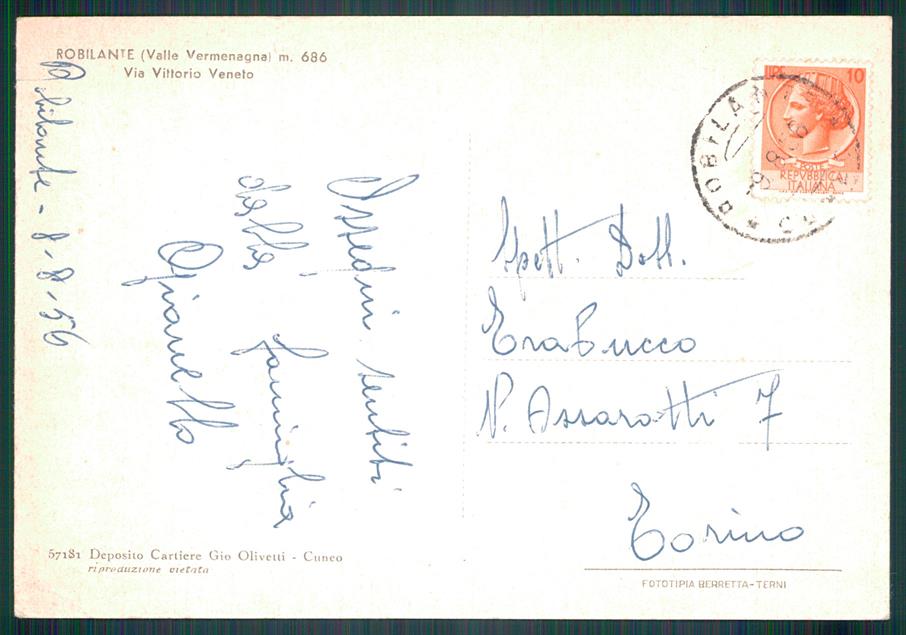 ROBILANTE (Valle Vermenagna) m. 686
Via Vittorio Veneto
Robilante - 8-8-56
sentiti
della famiglia
LIRE 10
POSTE
REPVBBLICA
ITALIANA
ROBILAN
Spett. Dott.
Trabucco
V. Assarotti 7
Torino
57181 Deposito Cartiere Gio Olivetti - Cuneo
riproduzione vietata
FOTOTIPIA BERRETTA-TERNI